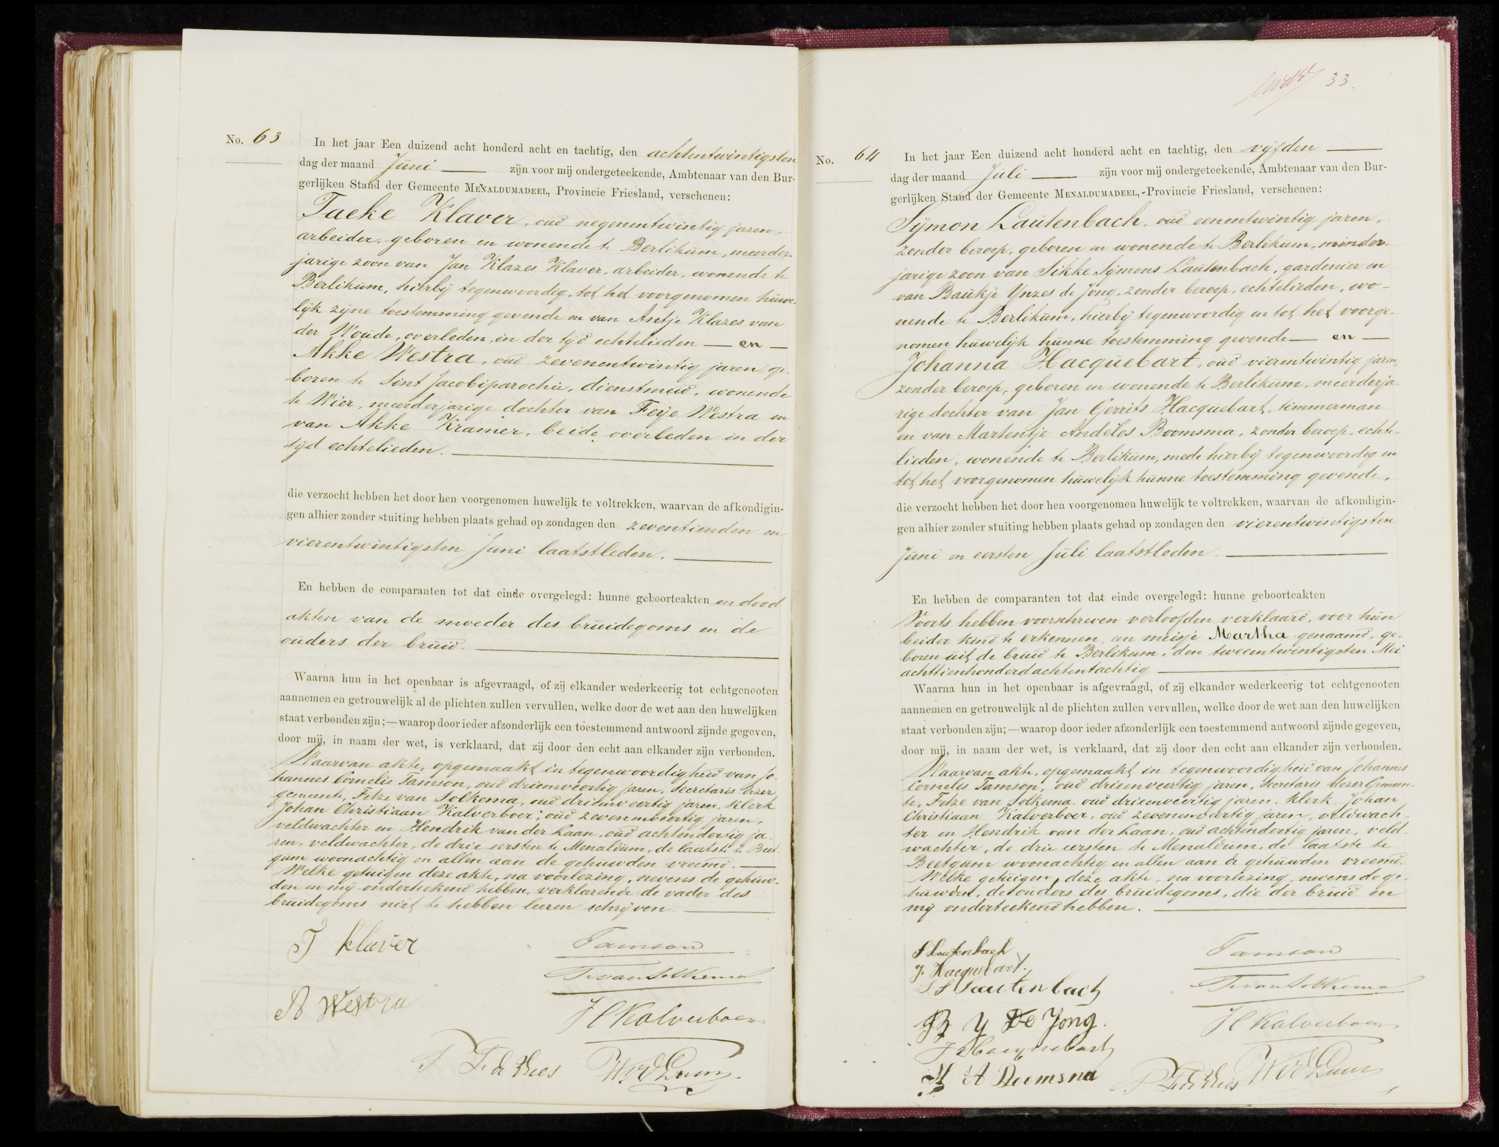 No. 63
In het jaar Een duizend acht honderd acht en tachtig, den achtentwintigsten
dag der maand Juni zijn voor mij ondergeteekende, Ambtenaar van den Bur-
gerlijken Stand der Gemeente MENALDUMADEEL, Provincie Friesland, verschenen:
Taeke Klaver, oud negenentwintig jaren,
arbeider, geboren en wonende te Berlikum, meerder-
jarige zoon van Jan Klazes Klaver, arbeider, wonende te
Berlikum, hierbij tegenwoordig, tot het voorgenomen huwe-
lijk zijne toestemming gevende en van Antje Klazes van
der Woude, overleden, in der tijd echtelieden — en —
Akke Westra, oud zevenentwintig jaren, ge-
boren te Sint Jacobiparochie, dienstmeid, wonende
te Wier, meerderjarige dochter van Feije Westra en
van Akke Kramer, beide overleden in der
tijd echtelieden.
die verzocht hebben het door hen voorgenomen huwelijk te voltrekken, waarvan de afkondigin-
gen alhier zonder stuiting hebben plaats gehad op zondagen den zeventienden en
vierentwintigsten Juni laatstleden.
En hebben de comparanten tot dat einde overgelegd: hunne geboorteakten en dood
akten van de moeder des bruidegoms en de
ouders der bruid.
Waarna hun in het openbaar is afgevraagd, of zij elkander wederkeerig tot echtgenooten
aannemen en getrouwelijk al de plichten zullen vervullen, welke door de wet aan den huwelijken
staat verbonden zijn;—waarop door ieder afzonderlijk een toestemmend antwoord zijnde gegeven,
door mij, in naam der wet, is verklaard, dat zij door den echt aan elkander zijn verbonden.
Waarvan akte, opgemaakt in tegenwoordigheid van Jo-
hannes Cornelis Tamson, oud drieenveertig jaren, Secretaris dezer
gemeente, Fetze van Solkema, oud drieenveertig jaren, klerk
Johan Christiaan Kalverboer, oud zevenenveertig jaren,
veldwachter en Hendrik van der Laan, oud achtendertig ja-
ren, veldwachter, de drie eersten te Menaldum, de laatste te Beet-
gum woonachtig en allen aan de gehuwden vreemd.
Welke getuigen deze akte, na voorlezing, nevens de gehuw-
den en mij onderteekend hebben, verklarende de vader des
bruidegoms niet te hebben leeren schrijven
T Klaver
Tamson
F. van Solkema
A Westra
JC Kalverboer
33.
No. 64
In het jaar Een duizend acht honderd acht en tachtig, den vijfden
dag der maand Juli zijn voor mij ondergeteekende, Ambtenaar van den Bur-
gerlijken Stand der Gemeente MENALDUMADEEL, Provincie Friesland, verschenen:
Sijmon Lautenbach, oud eenentwintig jaren,
zonder beroep, geboren en wonende te Berlikum, minder-
jarige zoon van Sikke Sijmons Lautenbach, gardenier en
van Baukje IJnzes de Jong, zonder beroep, echtelieden, wo-
nende te Berlikum, hierbij tegenwoordig en tot het voorge-
nomen huwelijk hunne toestemming gevende — en —
Johanna Hacquebart, oud vierentwintig jaren,
zonder beroep, geboren en wonende te Berlikum, meerderja-
rige dochter van Jan Gerrits Hacquebart, timmerman
en van Martentje Andeles Boomsma, zonder beroep, echte-
lieden, wonende te Berlikum, mede hierbij tegenwoordig en
tot het voorgenomen huwelijk hunne toestemming gevende,
die verzocht hebben het door hen voorgenomen huwelijk te voltrekken, waarvan de afkondigin-
gen alhier zonder stuiting hebben plaats gehad op zondagen den vierentwintigsten
Juni en eersten Juli laatstleden.
En hebben de comparanten tot dat einde overgelegd: hunne geboorteakten
Voorts hebben voorschreven verloofden verklaard, voor hun
beider kind te erkennen, een meisje Martha genaamd, ge-
boren uit de bruid te Berlikum, den tweeentwintigsten Mei
achttienhonderdachtentachtig
Waarna hun in het openbaar is afgevraagd, of zij elkander wederkeerig tot echtgenooten
aannemen en getrouwelijk al de plichten zullen vervullen, welke door de wet aan den huwelijken
staat verbonden zijn;—waarop door ieder afzonderlijk een toestemmend antwoord zijnde gegeven,
door mij, in naam der wet, is verklaard, dat zij door den echt aan elkander zijn verbonden.
Waarvan akte, opgemaakt in tegenwoordigheid van Johannes
Cornelis Tamson, oud drieenveertig jaren, Secretaris dezer Gemeen-
te, Fetze van Solkema, oud drieenveertig jaren, klerk, Johan
Christiaan Kalverboer, oud zevenenveertig jaren, veldwach-
ter en Hendrik van der Laan, oud achtendertig jaren, veld-
wachter, de drie eersten te Menaldum, de laatste te
Beetgum woonachtig en allen aan de gehuwden vreemd.
Welke getuigen deze akte, na voorlezing, nevens de ge-
huwden, de ouders des bruidegoms, die der bruid en
mij onderteekend hebben.
S Lautenbach
J. Hacquebart
S S Lautenbach
B Y de Jong.
J G Hacquebart
M A Boomsma
Tamson
F. van Solkema
JC Kalverboer